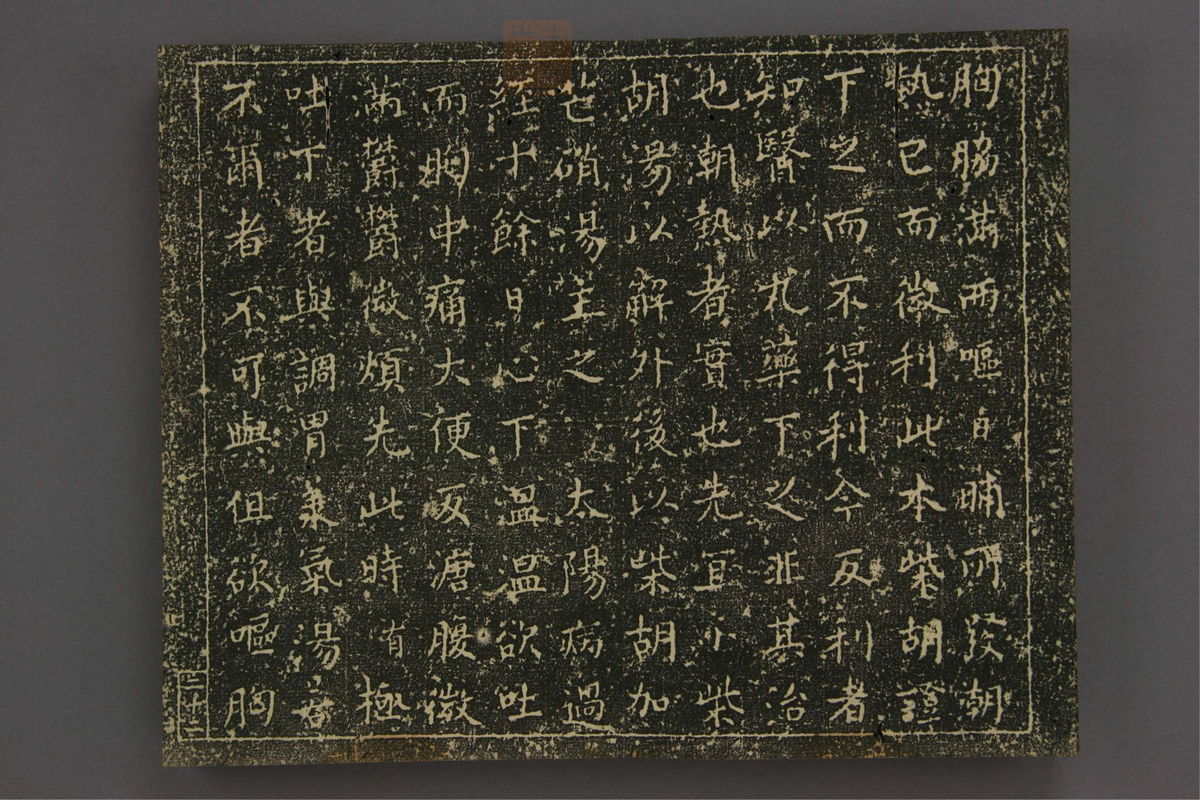 胸脇滿而嘔日晡所發潮
熱已而微利此本柴胡證
下之而不得利今反利者
知醫以丸藥下之非其治
也潮熱者實也先宜小柴
胡湯以解外後以柴胡加
芒硝湯主之 太陽病過
經十餘日心下溫溫欲吐
而胸中痛大便反溏腹微
滿欝欝微煩先此時有極
吐下者與調胃承氣湯若
不爾者不可與但欲嘔胸
二十二